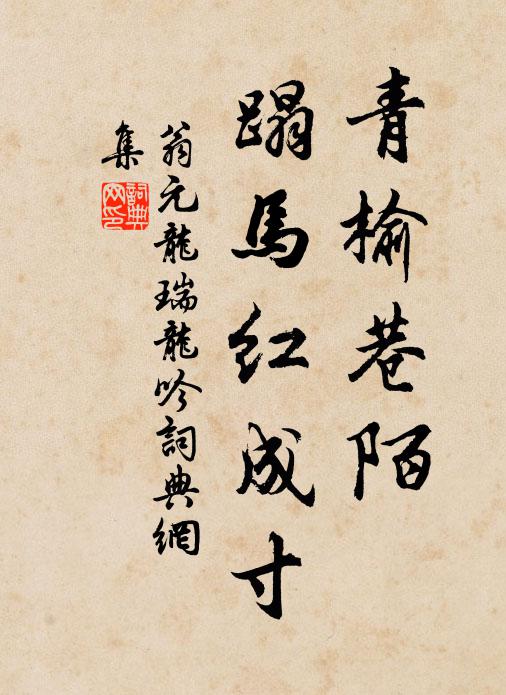 青榆巷陌
蹋馬红成寸
翁元龍瑞龍吟詞典網
集
詞典
网印